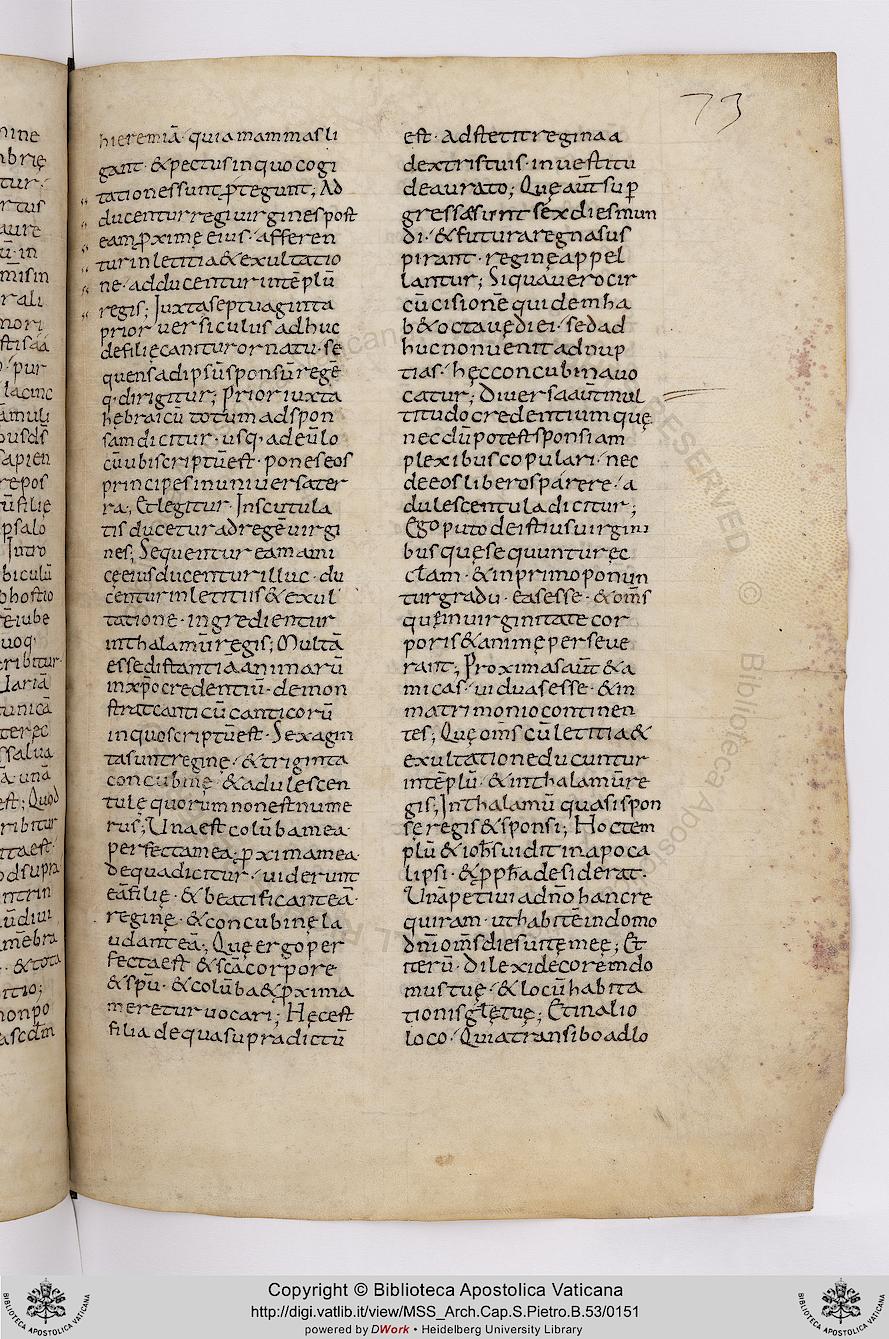 73
hieremiā· quia mammas li
gant· & pectus in quo cogi
tationes sunt ꝓtegunt; Ad
ducentur regi uirgines post
eam ꝓximę eius· afferen
tur in letitia & exultatio
ne· adducentur in tēplū
regis; Iuxta septuaginta
prior uersiculus adhuc
de filię canitur ornatu· se
quens ad ipsū sponsū regē
q· dirigitur; Prior iuxta
hębraicū totum ad spon
sam dicitur· usq· ad eū lo
cū ubi scriptū est· pones eos
principes in uniuersa ter
ra; Et legitur· In scutula
tis ducetur ad regē uirgi
nes; Sequentur eam ami
cę eius ducentur illuc· du
centur in letitiis & exul
tatione· ingredientur
in thalamū regis; Multā
esse distantiā animarū
in xp̄o credentiū· demon
strat canticū canticorū
in quo scriptū est· Sexagin
ta sunt reginę· & triginta
concubinę· & adulescen
tulę quorum non est nume
rus; Una est colūba mea·
perfecta mea; ꝓxima mea·
De qua dicitur· uiderunt
eā filię· & beatificant eā·
reginę· & concubinę la
udant eā; Quę ergo per
fecta est & scā corpore
& spū· & colūba & ꝓxima
meretur uocari; Hęc est
filia de qua supra dictū
est· Adstetit regina a
dextris tuis· in uestitu
deaurato; Quę aūt sup
gressa sunt sex dies mun
di· & futura regna sus
pirant· reginę appel
lantur; Siqua uero cir
cūcisionē quidem ha
b& octauę diei· sed ad
huc non uenit ad nup
tias· hęc concubina uo
catur; Diuersa aūt mul
titudo credentium quę
necdū potest sponsi am
plexibus copulari· nec
de eo sliberos parere· a
dulescentula dicitur;
Ego puto de istius uirgini
bus quę sequuntur ec
clam· & in primo ponun
tur gradu· eas esse· & om̄s
quę in uirginitate cor
poris & animę perseue
rant; Proximas aūt & a
micas· uiduas esse· & in
matrimonio continen
tes; Quę om̄s cū letitia &
exultatione ducuntur
in tēplū· & in thalamū re
gis; In thalamū quasi spon
sę regis & sponsi; Hoc tem
plū & ioh̄s uidit in apoca
lipsi· & ꝓph̄a desiderat·
Unā petiui ad n̄o hanc re
quiram· ut habitē in domo
dn̄i om̄s dies uitę meę; Et
iterū· Dilexi decorē indo
mus tuę· & locū habita
tionis glę tuę; Et in alio
loco· Quia transibo ad lo
Copyright © Biblioteca Apostolica Vaticana
http://digi.vatlib.it/view/MSS_Arch.Cap.S.Pietro.B.53/0151
powered by DWork • Heidelberg University Library